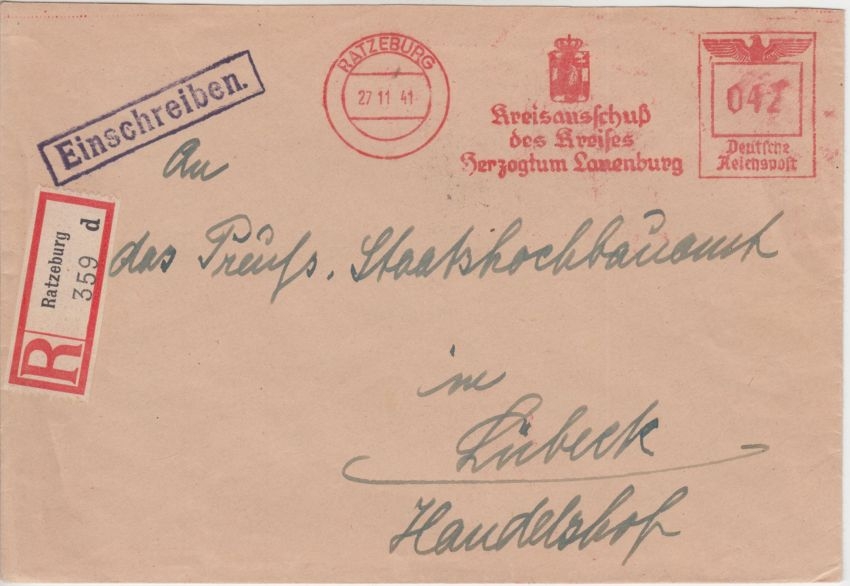 Einschreiben.
RATZEBURG
27 11 41
Kreisausschuß
des Kreises
Herzogtum Lauenburg
042
Deutsche
Reichspost
Ratzeburg
359 d
R
An
das Preuß. Staatshochbauamt
in
Lübeck
Handelshof